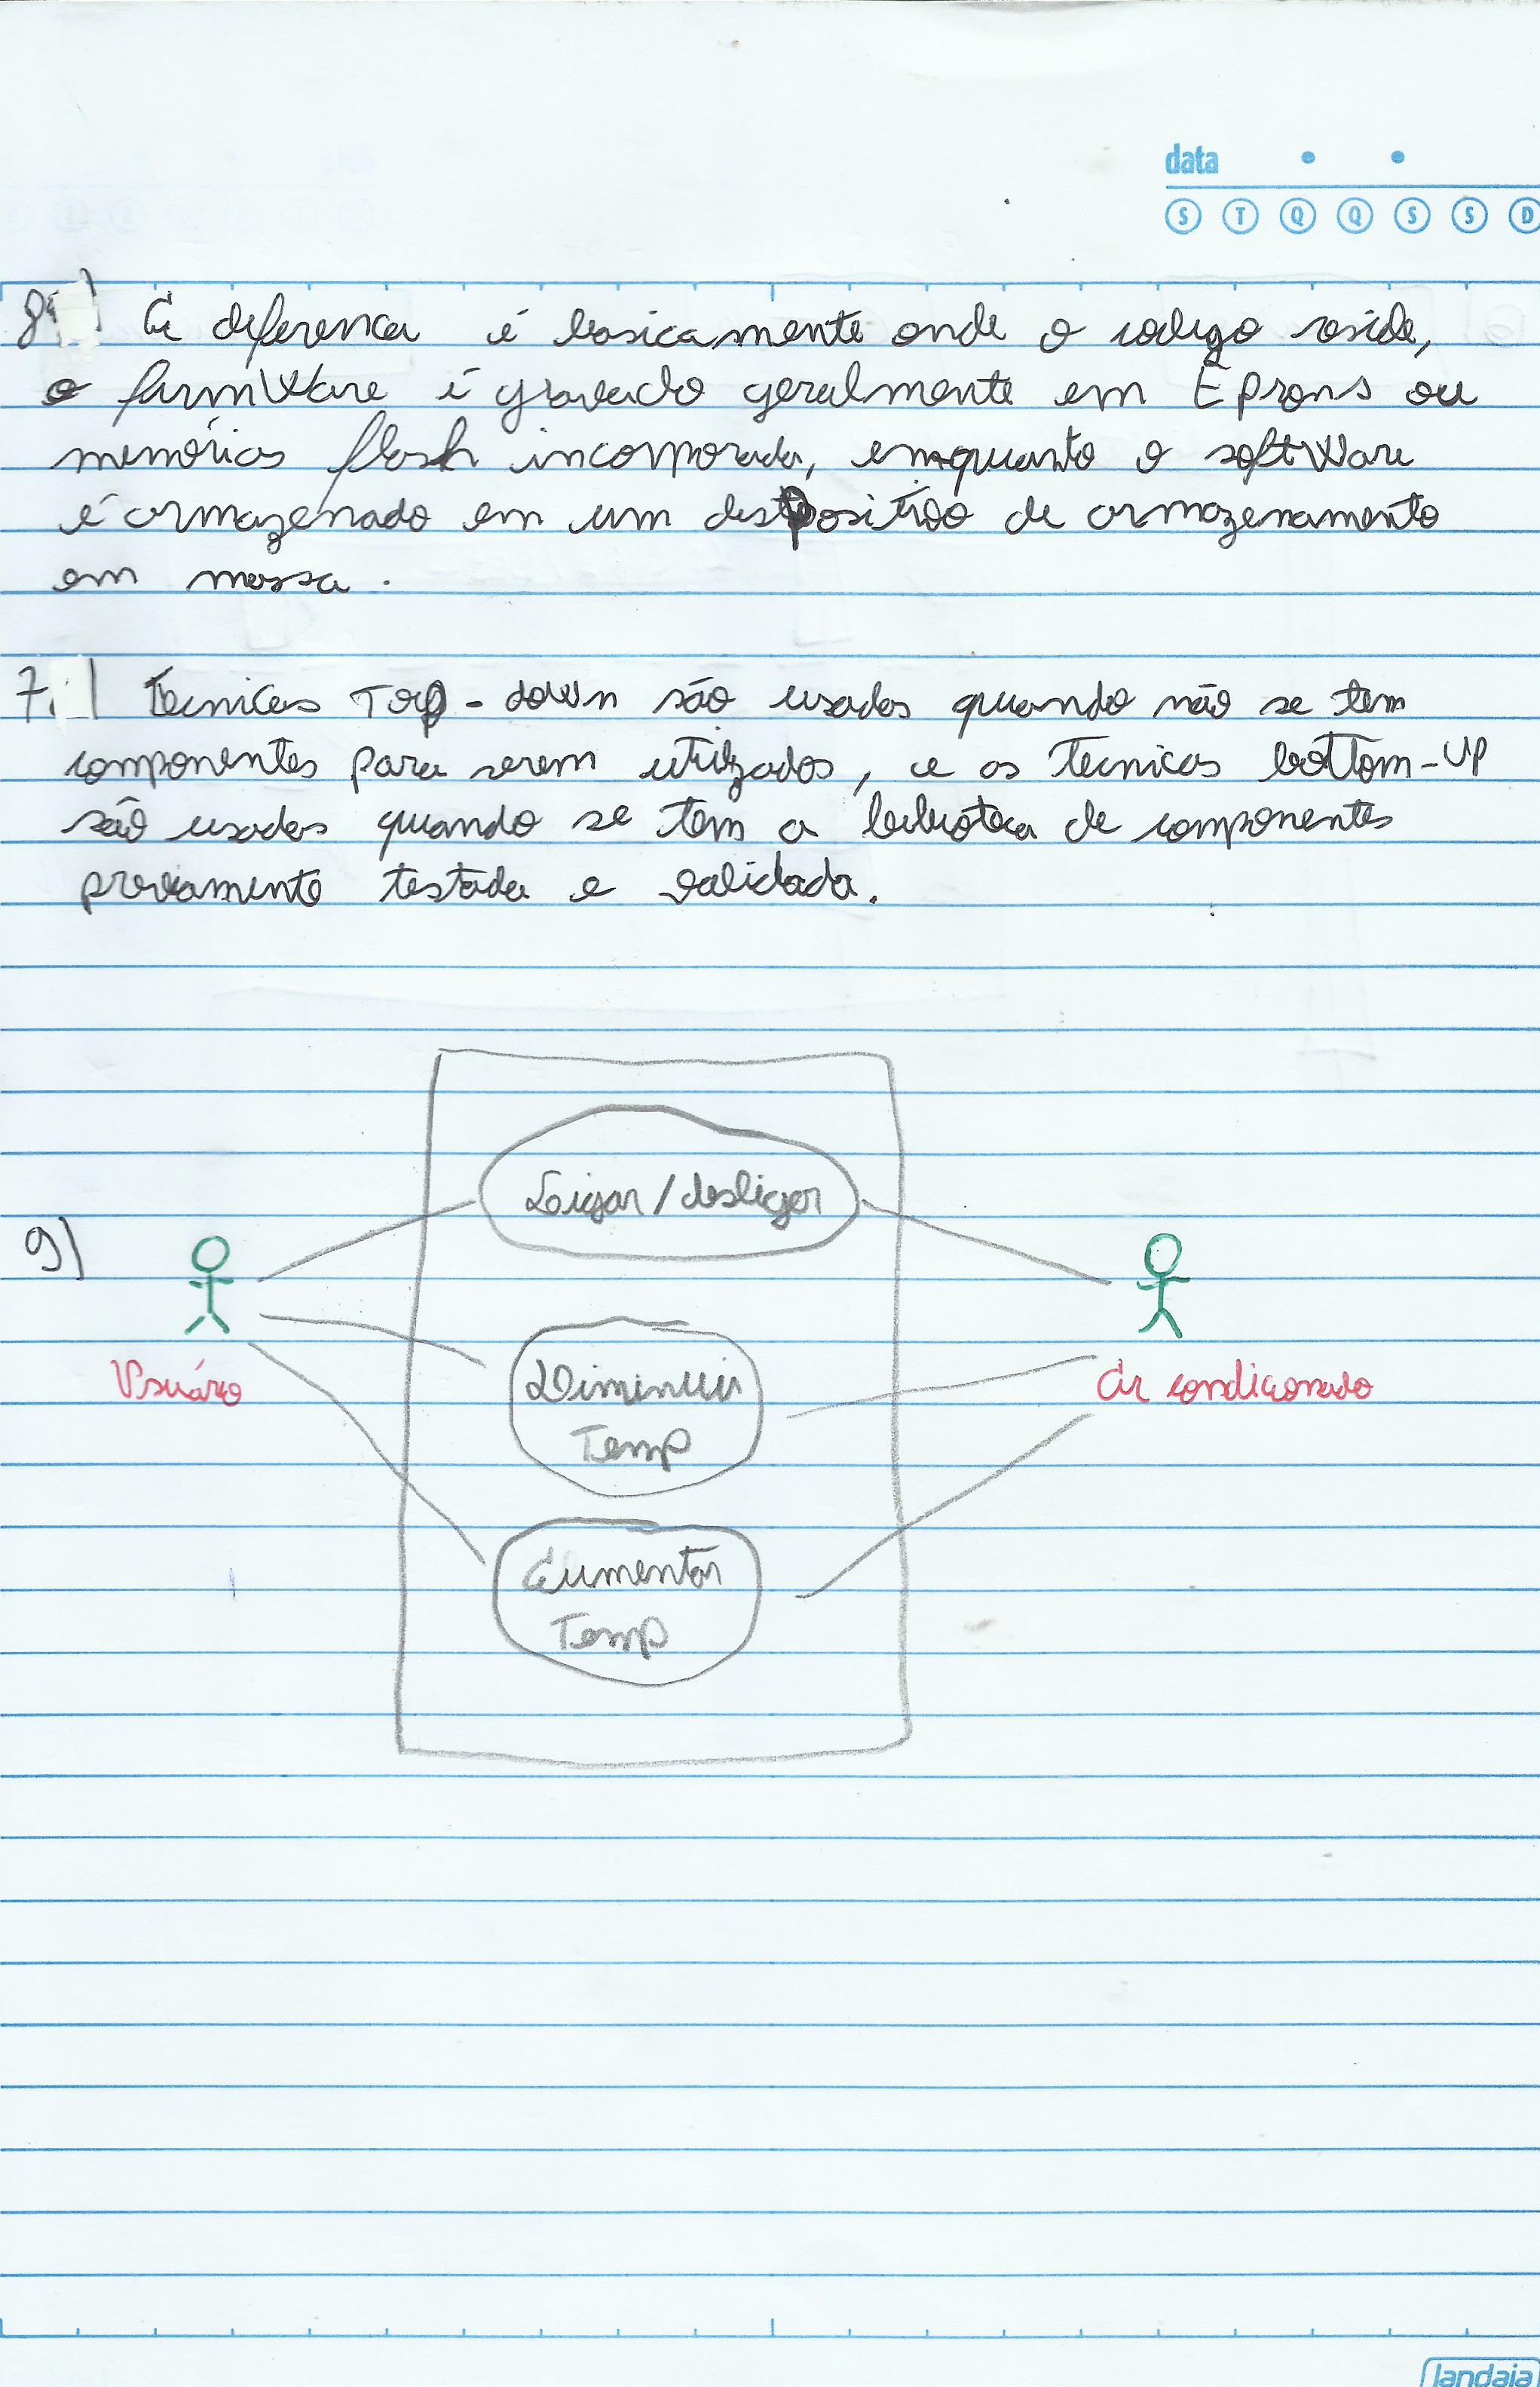 data
S T Q Q S S D
8) A diferenca é basicamente onde o codigo reside,
o firmWare é gravado geralmente em Eproms ou
memórias flash incorporada, emquanto o softWare
é armazenado em um dispositivo de armazenamento
em massa.
7) Tecnicas Top-down são usadas quando não se tem
componentes para serem utilizados, e as tecnicas bottom-up
são usadas quando se tem a biblioteca de componentes
previamente testada e validada.
Ligar/desligar
9)
Diminuir
Usuário
Ar condicionado
Temp
Aumentar
Temp
landaia